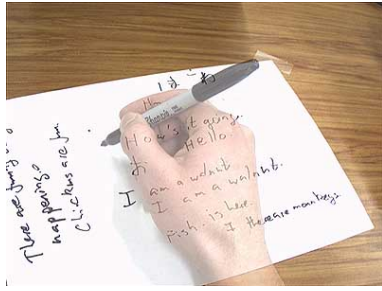 There are funny
happening.
Chickens are fun.
How's it going.
Hello.
I am a walnut.
I am a walnut.
Fish is here.
I there are monkeys